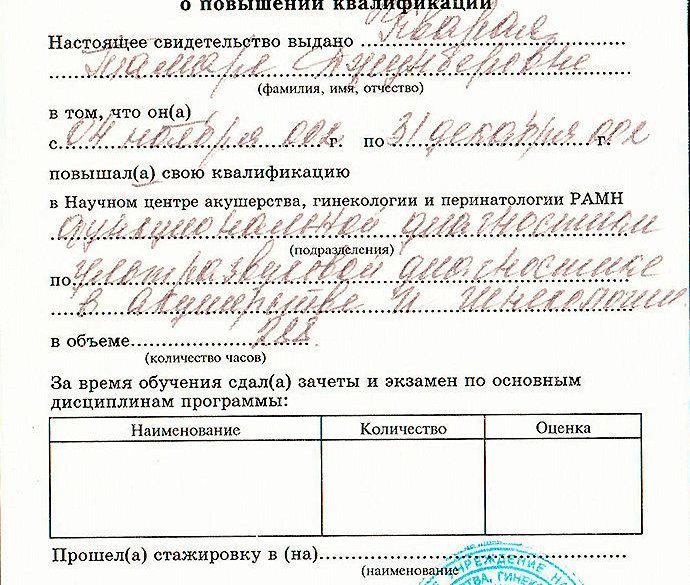 о повышении квалификации
Настоящее свидетельство выдано Кварая
Тамаре
(фамилия, имя, отчество)
в том, что он(а)
с 04 ноября 002 г. по 31 декабря 002 г.
повышал(а) свою квалификацию
в Научном центре акушерства, гинекологии и перинатологии РАМН
функциональной диагностики
(подразделения)
по ультразвуковой диагностике
в акушерстве и гинекологии
в объеме 288
(количество часов)
За время обучения сдал(а) зачеты и экзамен по основным
дисциплинам программы:
Наименование Количество Оценка
Прошел(а) стажировку в (на)
(наименование
УЧРЕЖДЕНИЕ